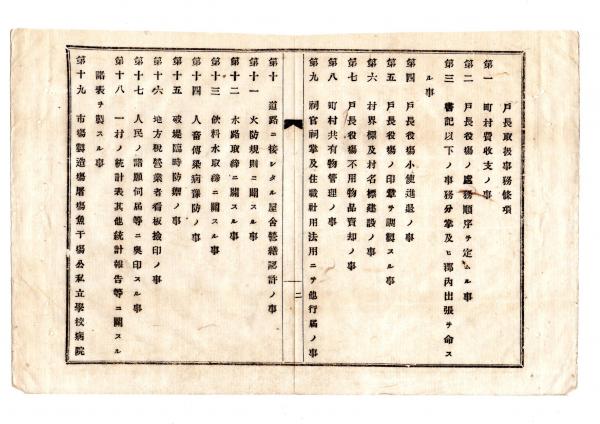 戸長取扱事務條項
第一　町村費收支ノ事
第二　戸長役塲ノ處務順序ヲ定ムル事
第三　書記以下ノ事務分掌及ヒ郡內出張ヲ命ス
ル事
第四　戸長役塲小使進退ノ事
第五　戸長役塲ノ印章ヲ調製スル事
第六　村界標及村名標建設ノ事
第七　戸長役塲不用物品賣却ノ事
第八　町村共有物管理ノ事
第九　祠官祠掌及住職社用法用ニテ他行届ノ事
二
第十　道路ニ接シタル屋舍營繕認許ノ事
第十一　火防規則ニ關スル事
第十二　水路取締ニ關スル事
第十三　飲料水取締ニ關スル事
第十四　人畜傳染病豫防ノ事
第十五　破堤臨時防禦ノ事
第十六　地方稅營業者看板撿印ノ事
第十七　人民ノ諸願伺屆等ニ奧印スル事
第十八　一村ノ統計表其他統計報告等ニ關スル
諸表ヲ製スル事
第十九　市塲製造塲屠塲魚干塲公私立學校病院